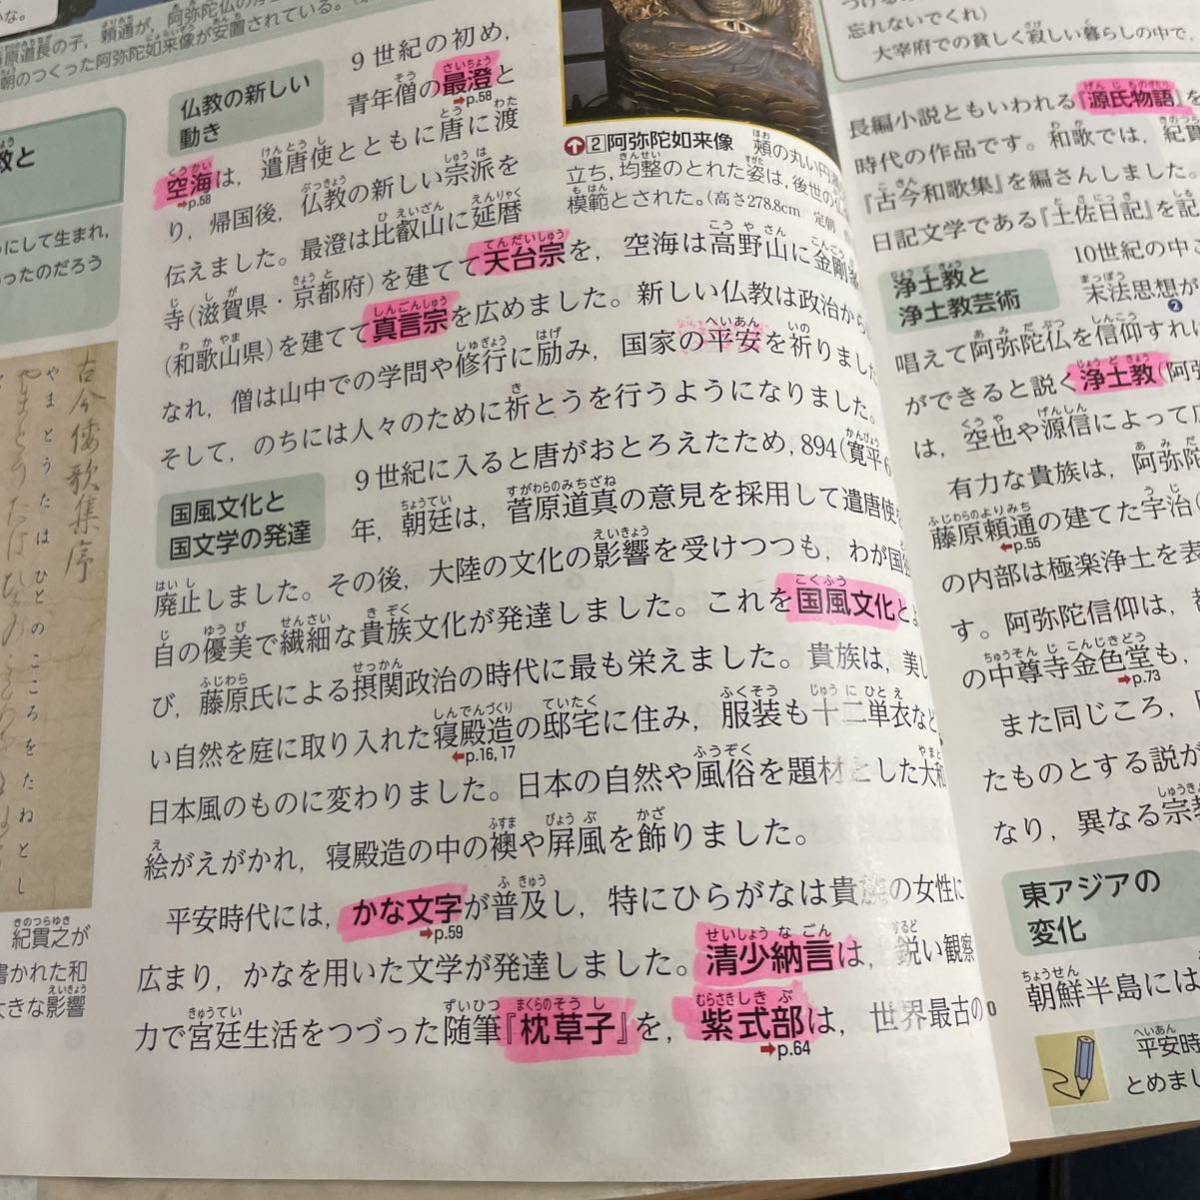 仏教の新しい
動き
9世紀の初め,
青年僧の最澄と
➡p.58
空海は, 遣唐使とともに唐に渡
➡p.58
り, 帰国後, 仏教の新しい宗派を
伝えました。最澄は比叡山に延暦
寺(滋賀県・京都府)を建てて天台宗を, 空海は高野山に金剛
(和歌山県)を建てて真言宗を広めました。新しい仏教は政治から
なれ, 僧は山中での学問や修行に励み, 国家の平安を祈りました
そして, のちには人々のために祈とうを行うようになりました。
国風文化と
国文学の発達
9世紀に入ると唐がおとろえたため, 894(寛平6
年, 朝廷は, 菅原道真の意見を採用して遣唐使
廃止しました。その後, 大陸の文化の影響を受けつつも, わが国
自の優美で繊細な貴族文化が発達しました。これを国風文化とよ
び, 藤原氏による摂関政治の時代に最も栄えました。貴族は, 美し
い自然を庭に取り入れた寝殿造の邸宅に住み, 服装も十二単衣など
➡p.16, 17
日本風のものに変わりました。日本の自然や風俗を題材とした大和
絵がえがかれ, 寝殿造の中の襖や屏風を飾りました。
平安時代には, かな文字が普及し, 特にひらがなは貴族の女性に
➡p.59
広まり, かなを用いた文学が発達しました。清少納言は, 鋭い観察
力で宮廷生活をつづった随筆『枕草子』を, 紫式部は, 世界最古の
➡p.64
2 阿弥陀如来像 頰の丸い円満
立ち, 均整のとれた姿は, 後世の仏
模範とされた。(高さ278.8cm 定朝
原道長の子, 頼通が,
朝のつくった阿弥陀如来像が安置されている。
教と
にして生まれ,
ったのだろう
古今倭歌集序
やまとうたはひとのこころをたねとし
紀貫之が
書かれた和
大きな影響
忘れないでくれ)
大宰府での貧しく寂しい暮らしの中で,
長編小説ともいわれる『源氏物語』を
時代の作品です。和歌では, 紀貫
『古今和歌集』を編さんしました。
日記文学である『土佐日記』を記
浄土教と
浄土教芸術
10世紀の中ご
末法思想が
唱えて阿弥陀仏を信仰すれ
ができると説く浄土教(阿弥
は, 空也や源信によって
有力な貴族は, 阿弥陀
藤原頼通の建てた宇治
➡p.55
の内部は極楽浄土を表
す。阿弥陀信仰は,
の中尊寺金色堂も,
➡p.73
また同じころ,
たものとする説が
なり, 異なる宗教
東アジアの
変化
朝鮮半島には
平安時
とめまし